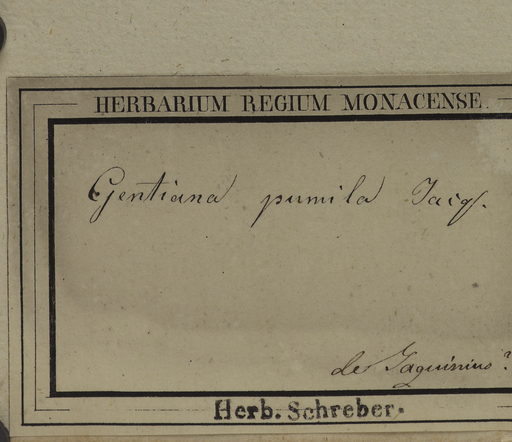 HERBARIUM REGIUM MONACENSE.
Gentiana pumila Jacq.
de Jaquinius?
Herb. Schreber.